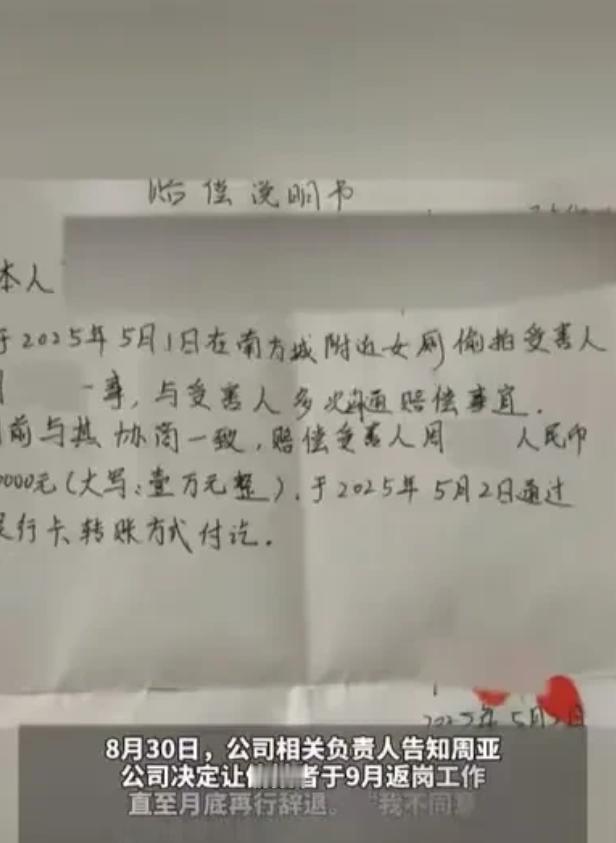 赔偿说明书
本人
于2025年5月1日在南方城附近女厕偷拍受害人
一事,与受害人多次沟通赔偿事宜.
前与其协商一致,赔偿受害人周 人民币
0000元(大写:壹万元整),于2025年5月2日通过
银行卡转账方式付讫.
2025年5月2日
8月30日，公司相关负责人告知周亚
公司决定让 者于9月返岗工作
直至月底再行辞退。“我不同意